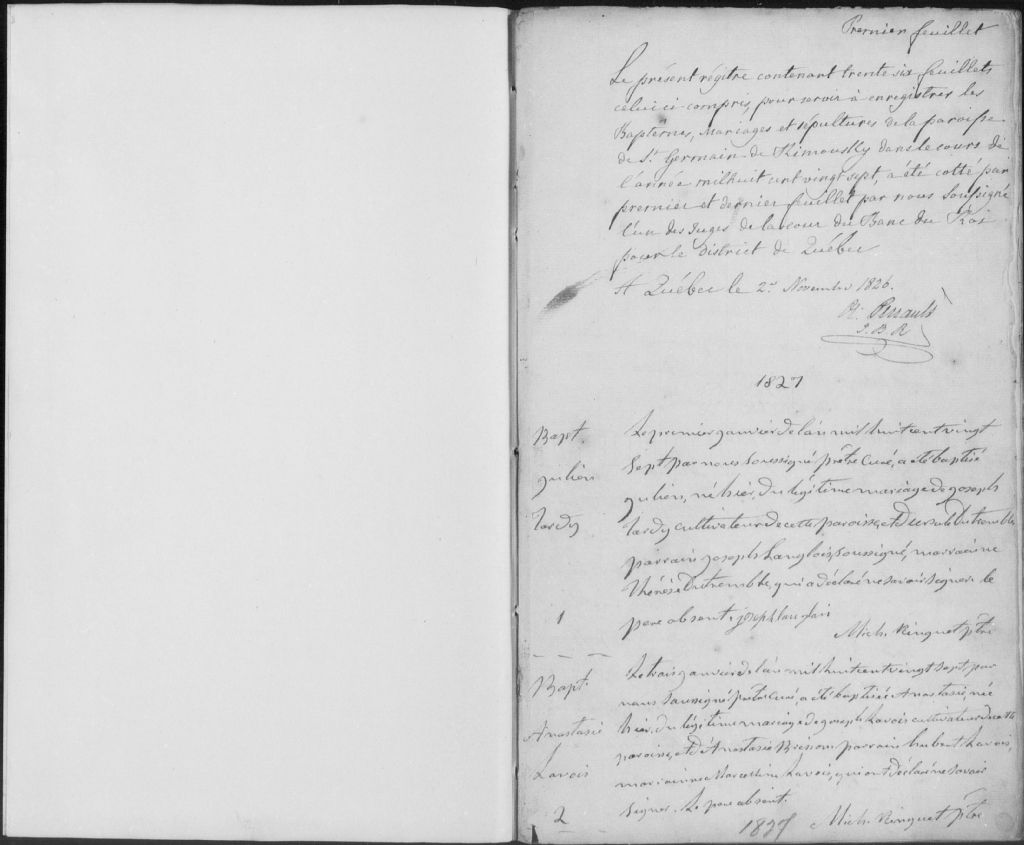 Premier feuillet
Le présent régitre contenant trente six feuillets
celui ci compris, pour servir à enregistrer les
Baptêmes, Mariages et sépultures de la paroisse
de St. Germain de Rimousky dans le cours de
l'année mil huit cent vingt sept, a été cotté par
premier et dernier feuillet par nous soussigné
l'un des Juges de la cour du Banc du Roi
pour le District de Québec
A Québec le 2 Novembre 1826.
Perrault
J. B. R
1827
Bapt.
Julien
Tardy
1
Le premier janvier de l'an mil huit cent vingt
sept par nous soussigné prêtre Curé, a été baptisé
Julien, né hier, du légitime mariage de Joseph
Tardy cultivateur de cette paroisse, et de ursule Dutremble,
parrain Joseph Langlois, soussigné, marraine
Thérèse Dutremble, qui a déclaré ne savoir signer. le
pere absent. joseph langlais
Mich. Ringuet ptre
Bapt.
Anastasie
Lavois
2
Le trois janvier de l'an mil huit cent vingt sept, par
nous soussigné prêtre Curé, a été baptisée Anastasie, née
hier, du légitime mariage de Joseph Lavois cultivateur de cette
paroisse, et d'Anastasie Brisson, parrain hubert Lavois,
marrainne Marcelline Lavois, qui ont déclaré ne savoir
signer. Le pere absent.
Mich. Ringuet ptre
1827